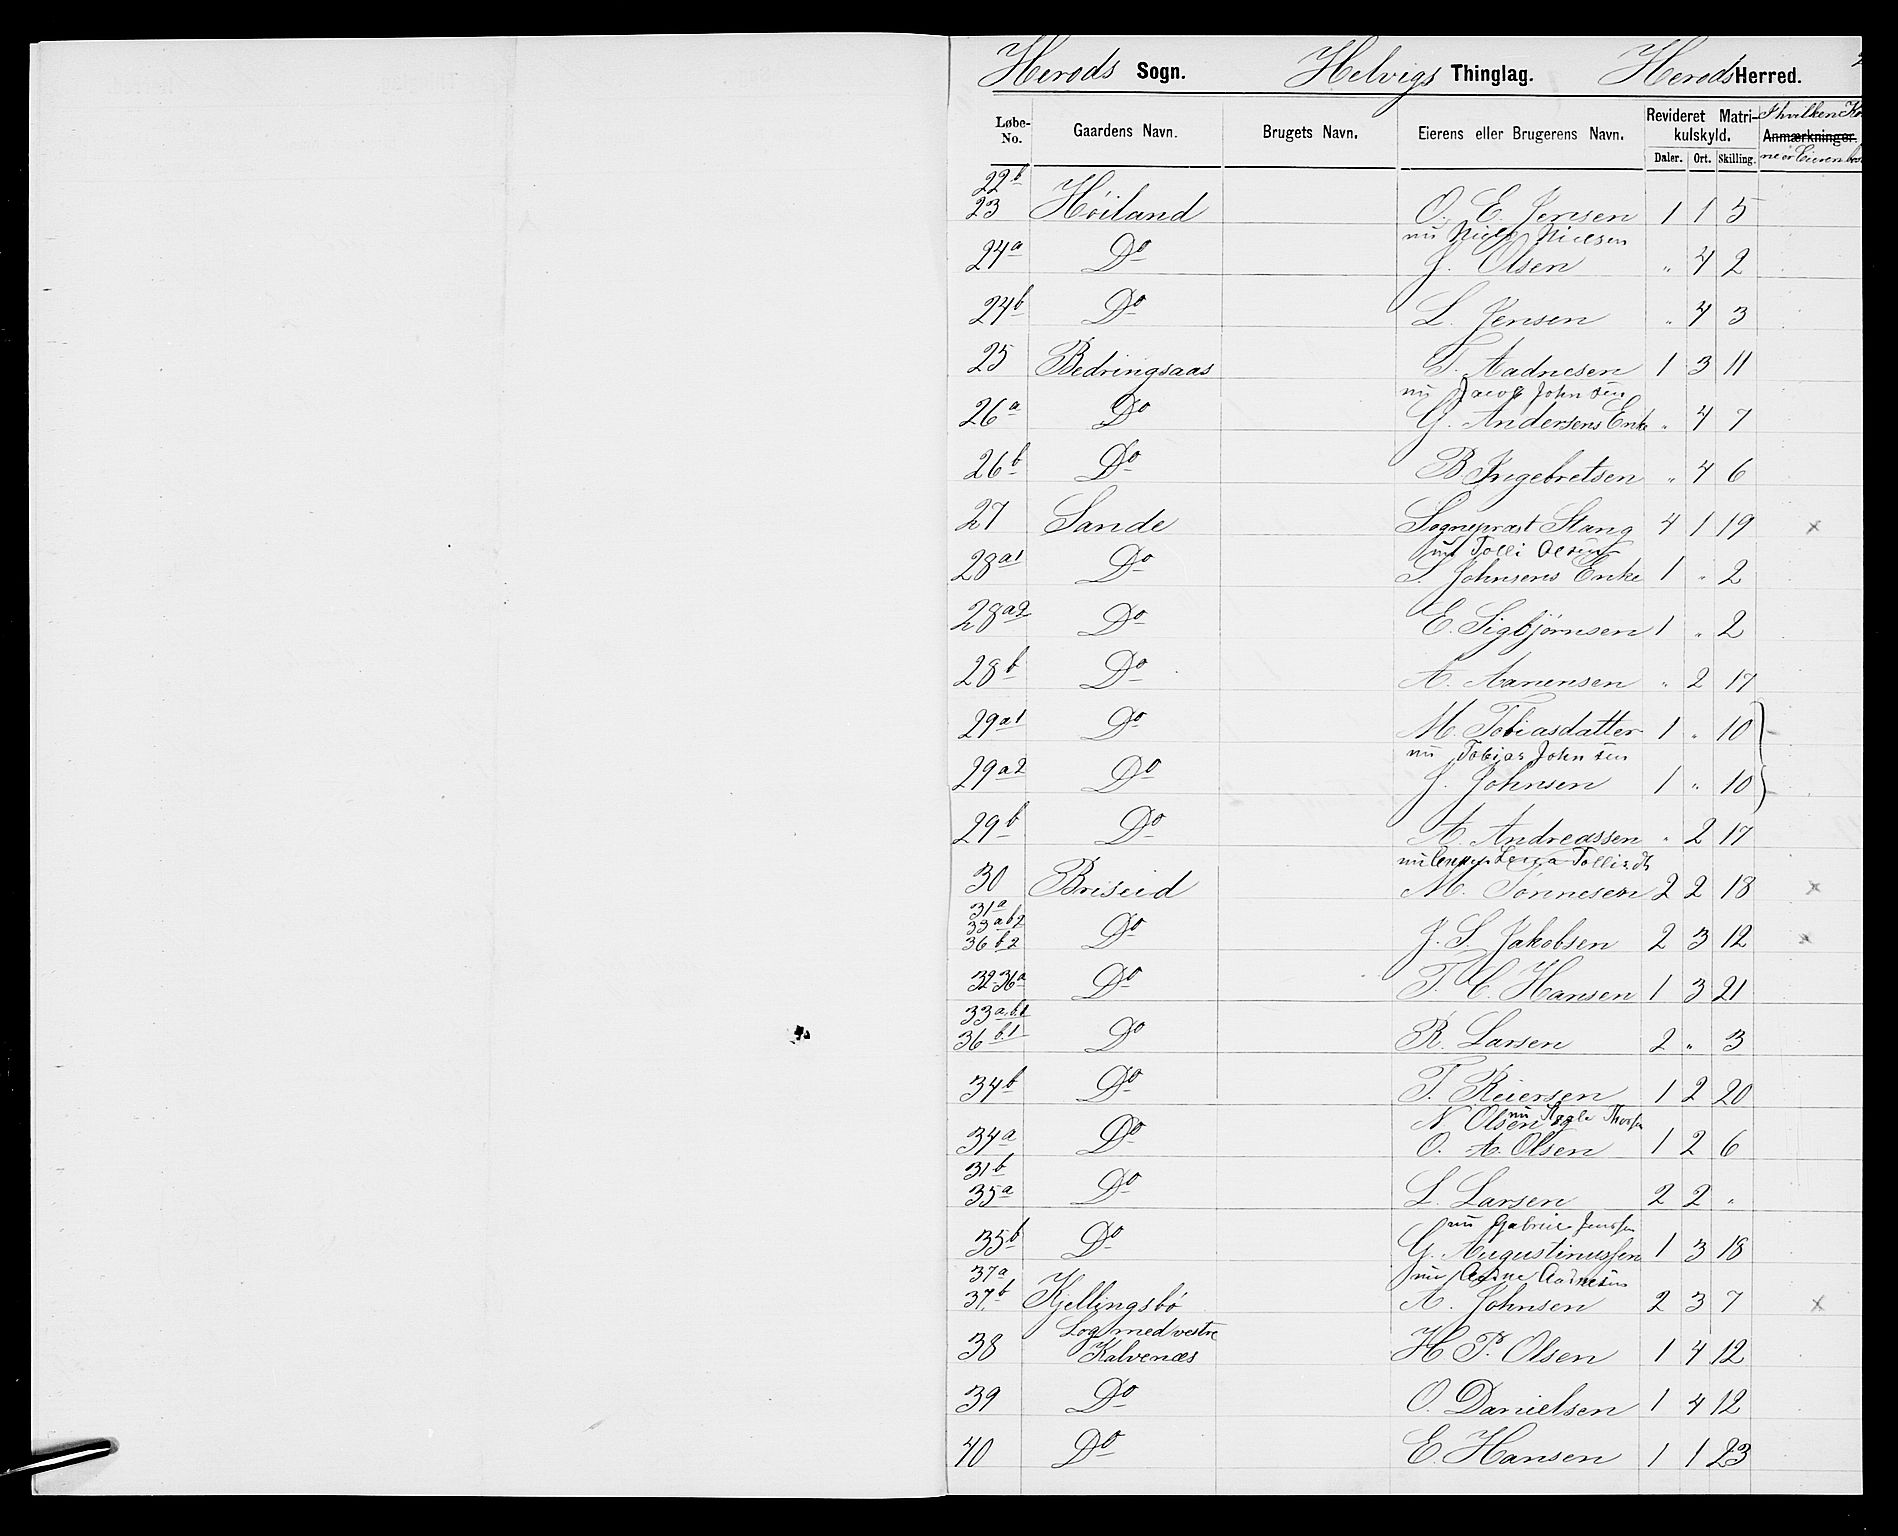 Herods Sogn. Helvigs Thinglag. Herods Herred.
Løbe-No. Gaardens Navn. Brugets Navn. Eierens eller Brugerens Navn. Revideret Matrikulskyld. Daler. Ort. Skilling. I hvilken Anmærkninger. ne er Eieren
22b
23 Høiland O. E. Jensen 1 1 5
nu Niels Nielsen
24a Do J. Olsen " 4 2
24b Do L. Jensen " 4 3
25 Bedringsaas T. Aadnesen 1 3 11
nu Jacob Johnsen
26a Do G. Andersens Enke " 4 7
26b Do B Ingebretsen " 4 6
27 Sande Sognepræst Stang 4 1 19 x
nu Tolli Olsen
28a1 Do S. Johnsens Enke 1 " 2
28a2 Do E. Sigbjørnsen 1 " 2
28b Do A. Aanensen " 2 17
29a1 Do M. Tobiasdatter 1 " 10
nu Tobias Johnsen
29a2 Do J. Johnsen 1 " 10
29b Do A. Andreassen " 2 17
nu Tollisdt
30 Briseid M. Tønnesen 2 2 18 x
31a
33ab2
36b2 Do J. S. Jakobsen 2 3 12 x
32-36a Do T. C. Hansen 1 3 21
33a.b.1
36b.1 Do R. Larsen 2 " 3
34b Do T. Reiersen 1 2 20
N. Olsen og nu
34a Do O. A. Olsen 1 2 6
31b
35a Do L. Larsen 2 2 "
nu Gabriel Jenssen
35b Do G. Augustinussen 1 3 18
37a nu Aadne Aadnesen
37b Kjellingsbø A. Johnsen 2 3 7 x
Log med vestre
38 Kalvenæs H. Pr. Olsen 1 4 12
39 Do O. Danielsen 1 4 12
40 Do E. Hansen 1 1 23